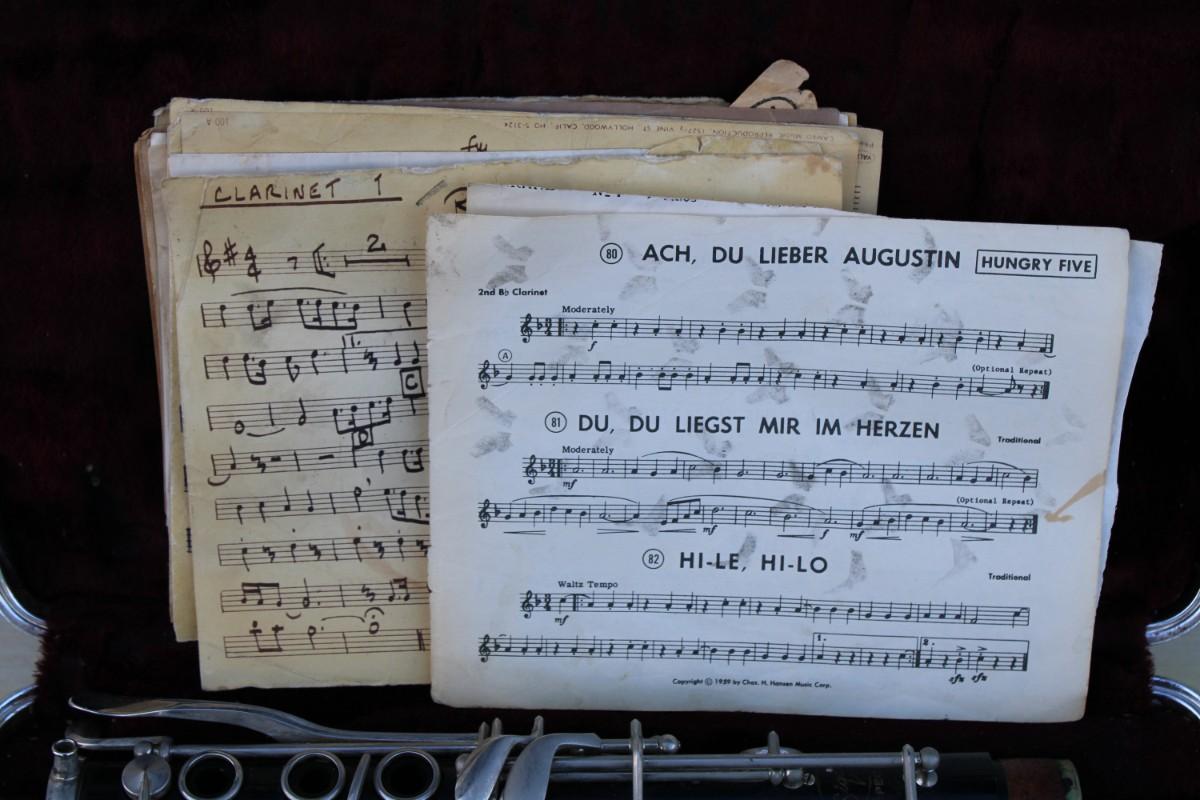 100 A
CAMEO MUSIC REPRODUCTION, 1527½ VINE ST. HOLLYWOOD, CALIF. HO 5-3124
CLARINET 1
2
C
D
80 ACH, DU LIEBER AUGUSTIN HUNGRY FIVE
2nd B♭ Clarinet
Moderately
f
A
(Optional Repeat)
81 DU, DU LIEGST MIR IM HERZEN
Traditional
Moderately
mf
(Optional Repeat)
mf f mf
82 HI-LE, HI-LO
Traditional
Waltz Tempo
mf
1. 2.
sfz sfz
Copyright © 1959 by Chas. H. Hansen Music Corp.